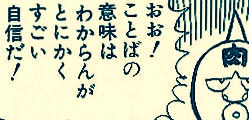 おお！
ことばの
意味は
わからんが
とにかく
すごい
自信だ！
肉